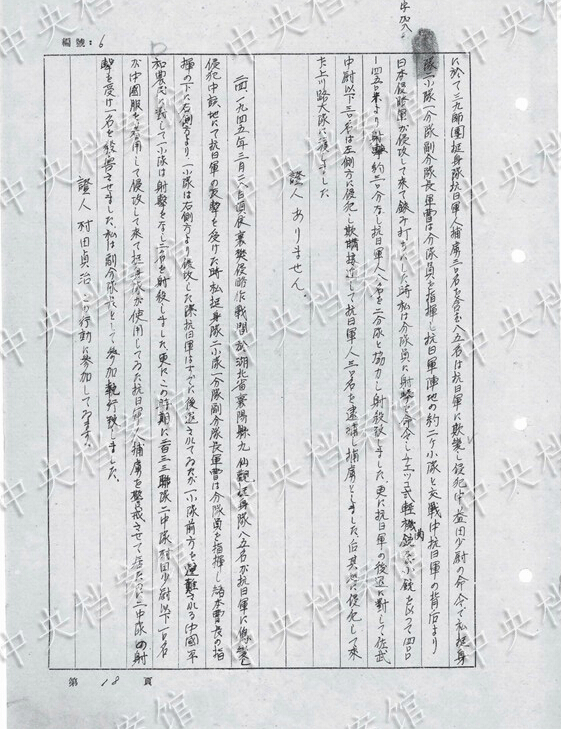 編號：6
字加入
に於て三九師團挺身隊抗日軍人捕虜三〇名を含む八五名は抗日軍に欺瞞し侵犯中益田少尉の命令で私挺身
隊二小隊一分隊副分隊長軍曹は分隊員を指揮し抗日軍陣地の約一ケ小隊と交戦中抗日軍の背后より
日本侵略軍が侵攻して来て挟み打ちにした時私は分隊員に射撃を命令しチェッコ式軽機関銃及小銃を以つて四〇〇
—四五〇米より射撃約二〇分なし抗日軍人八名を二分隊と協力し射殺致しました。更に抗日軍の後退に対して佐武
中尉以下三〇名は左側方に侵犯し欺瞞接近して抗日軍人三〇名を逮捕し捕虜としました。后其処に侵犯して来
た上川路大隊に渡しました
證人ありません。
二四、一九四五年三月二八日頃良襄樊侵略作戦間於湖北省襄陽縣九仙觀挺身隊八五名が抗日軍に偽裝し
侵犯中該地にて抗日軍の反撃を受けた時私挺身隊二小隊一分隊副分隊長軍曹は分隊員を指揮し 曹長の指
揮の下に右側方より一小隊は右側方より侵攻した際抗日軍はすでに後退されてゐたが一小隊前方を避難される中國平
和農民に対して一小隊は射撃をなし 名を射殺しました、更にこの時期に二百三三聯隊二中隊村田少尉以下一〇名
が中國服を着用して侵攻して来て挺身隊が使用してゐた抗日軍人捕虜を警戒させて居たのに二中隊の射
撃を受け一名を殺害させました、私は副分隊長として参加執行致しました。
證人 村田貞治 この行動に参加してゐます。
第 18 頁
中央档案馆